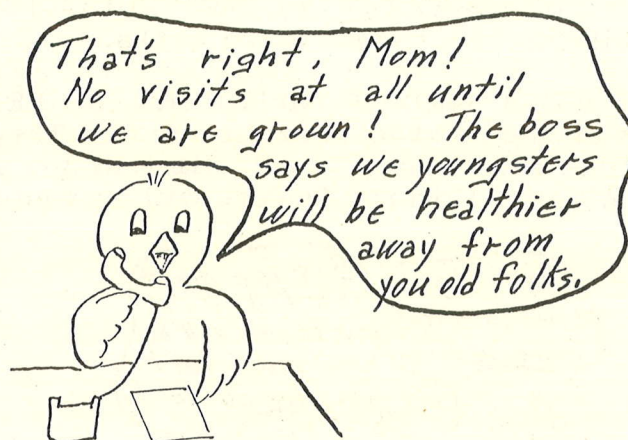 That's right, Mom!
No visits at all until
we are grown! The boss
says we youngsters
will be healthier
away from
you old folks.